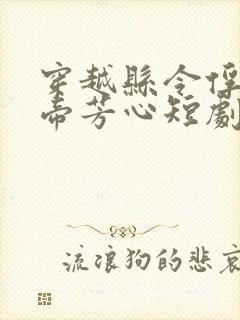 穿越縣令俘
帝芳心短劇
流浪狗的悲哀